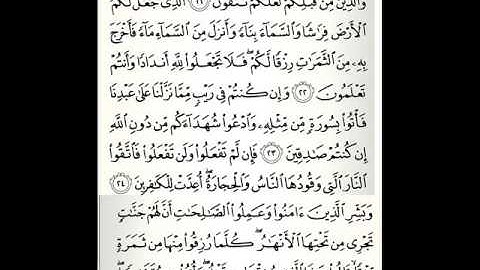 وَٱلَّذِينَ مِن قَبْلِكُمْ لَعَلَّكُمْ تَتَّقُونَ ٢١ ٱلَّذِى جَعَلَ لَكُمُ
ٱلْأَرْضَ فِرَٰشًا وَٱلسَّمَآءَ بِنَآءً وَأَنزَلَ مِنَ ٱلسَّمَآءِ مَآءً فَأَخْرَجَ
بِهِۦ مِنَ ٱلثَّمَرَٰتِ رِزْقًا لَّكُمْ ۖ فَلَا تَجْعَلُوا۟ لِلَّهِ أَندَادًا وَأَنتُمْ
تَعْلَمُونَ ٢٢ وَإِن كُنتُمْ فِى رَيْبٍ مِّمَّا نَزَّلْنَا عَلَىٰ عَبْدِنَا
فَأْتُوا۟ بِسُورَةٍ مِّن مِّثْلِهِۦ وَٱدْعُوا۟ شُهَدَآءَكُم مِّن دُونِ ٱللَّهِ
إِن كُنتُمْ صَٰدِقِينَ ٢٣ فَإِن لَّمْ تَفْعَلُوا۟ وَلَن تَفْعَلُوا۟ فَٱتَّقُوا۟
ٱلنَّارَ ٱلَّتِى وَقُودُهَا ٱلنَّاسُ وَٱلْحِجَارَةُ ۖ أُعِدَّتْ لِلْكَٰفِرِينَ ٢٤
وَبَشِّرِ ٱلَّذِينَ ءَامَنُوا۟ وَعَمِلُوا۟ ٱلصَّٰلِحَٰتِ أَنَّ لَهُمْ جَنَّٰتٍ
تَجْرِى مِن تَحْتِهَا ٱلْأَنْهَٰرُ ۖ كُلَّمَا رُزِقُوا۟ مِنْهَا مِن ثَمَرَةٍ